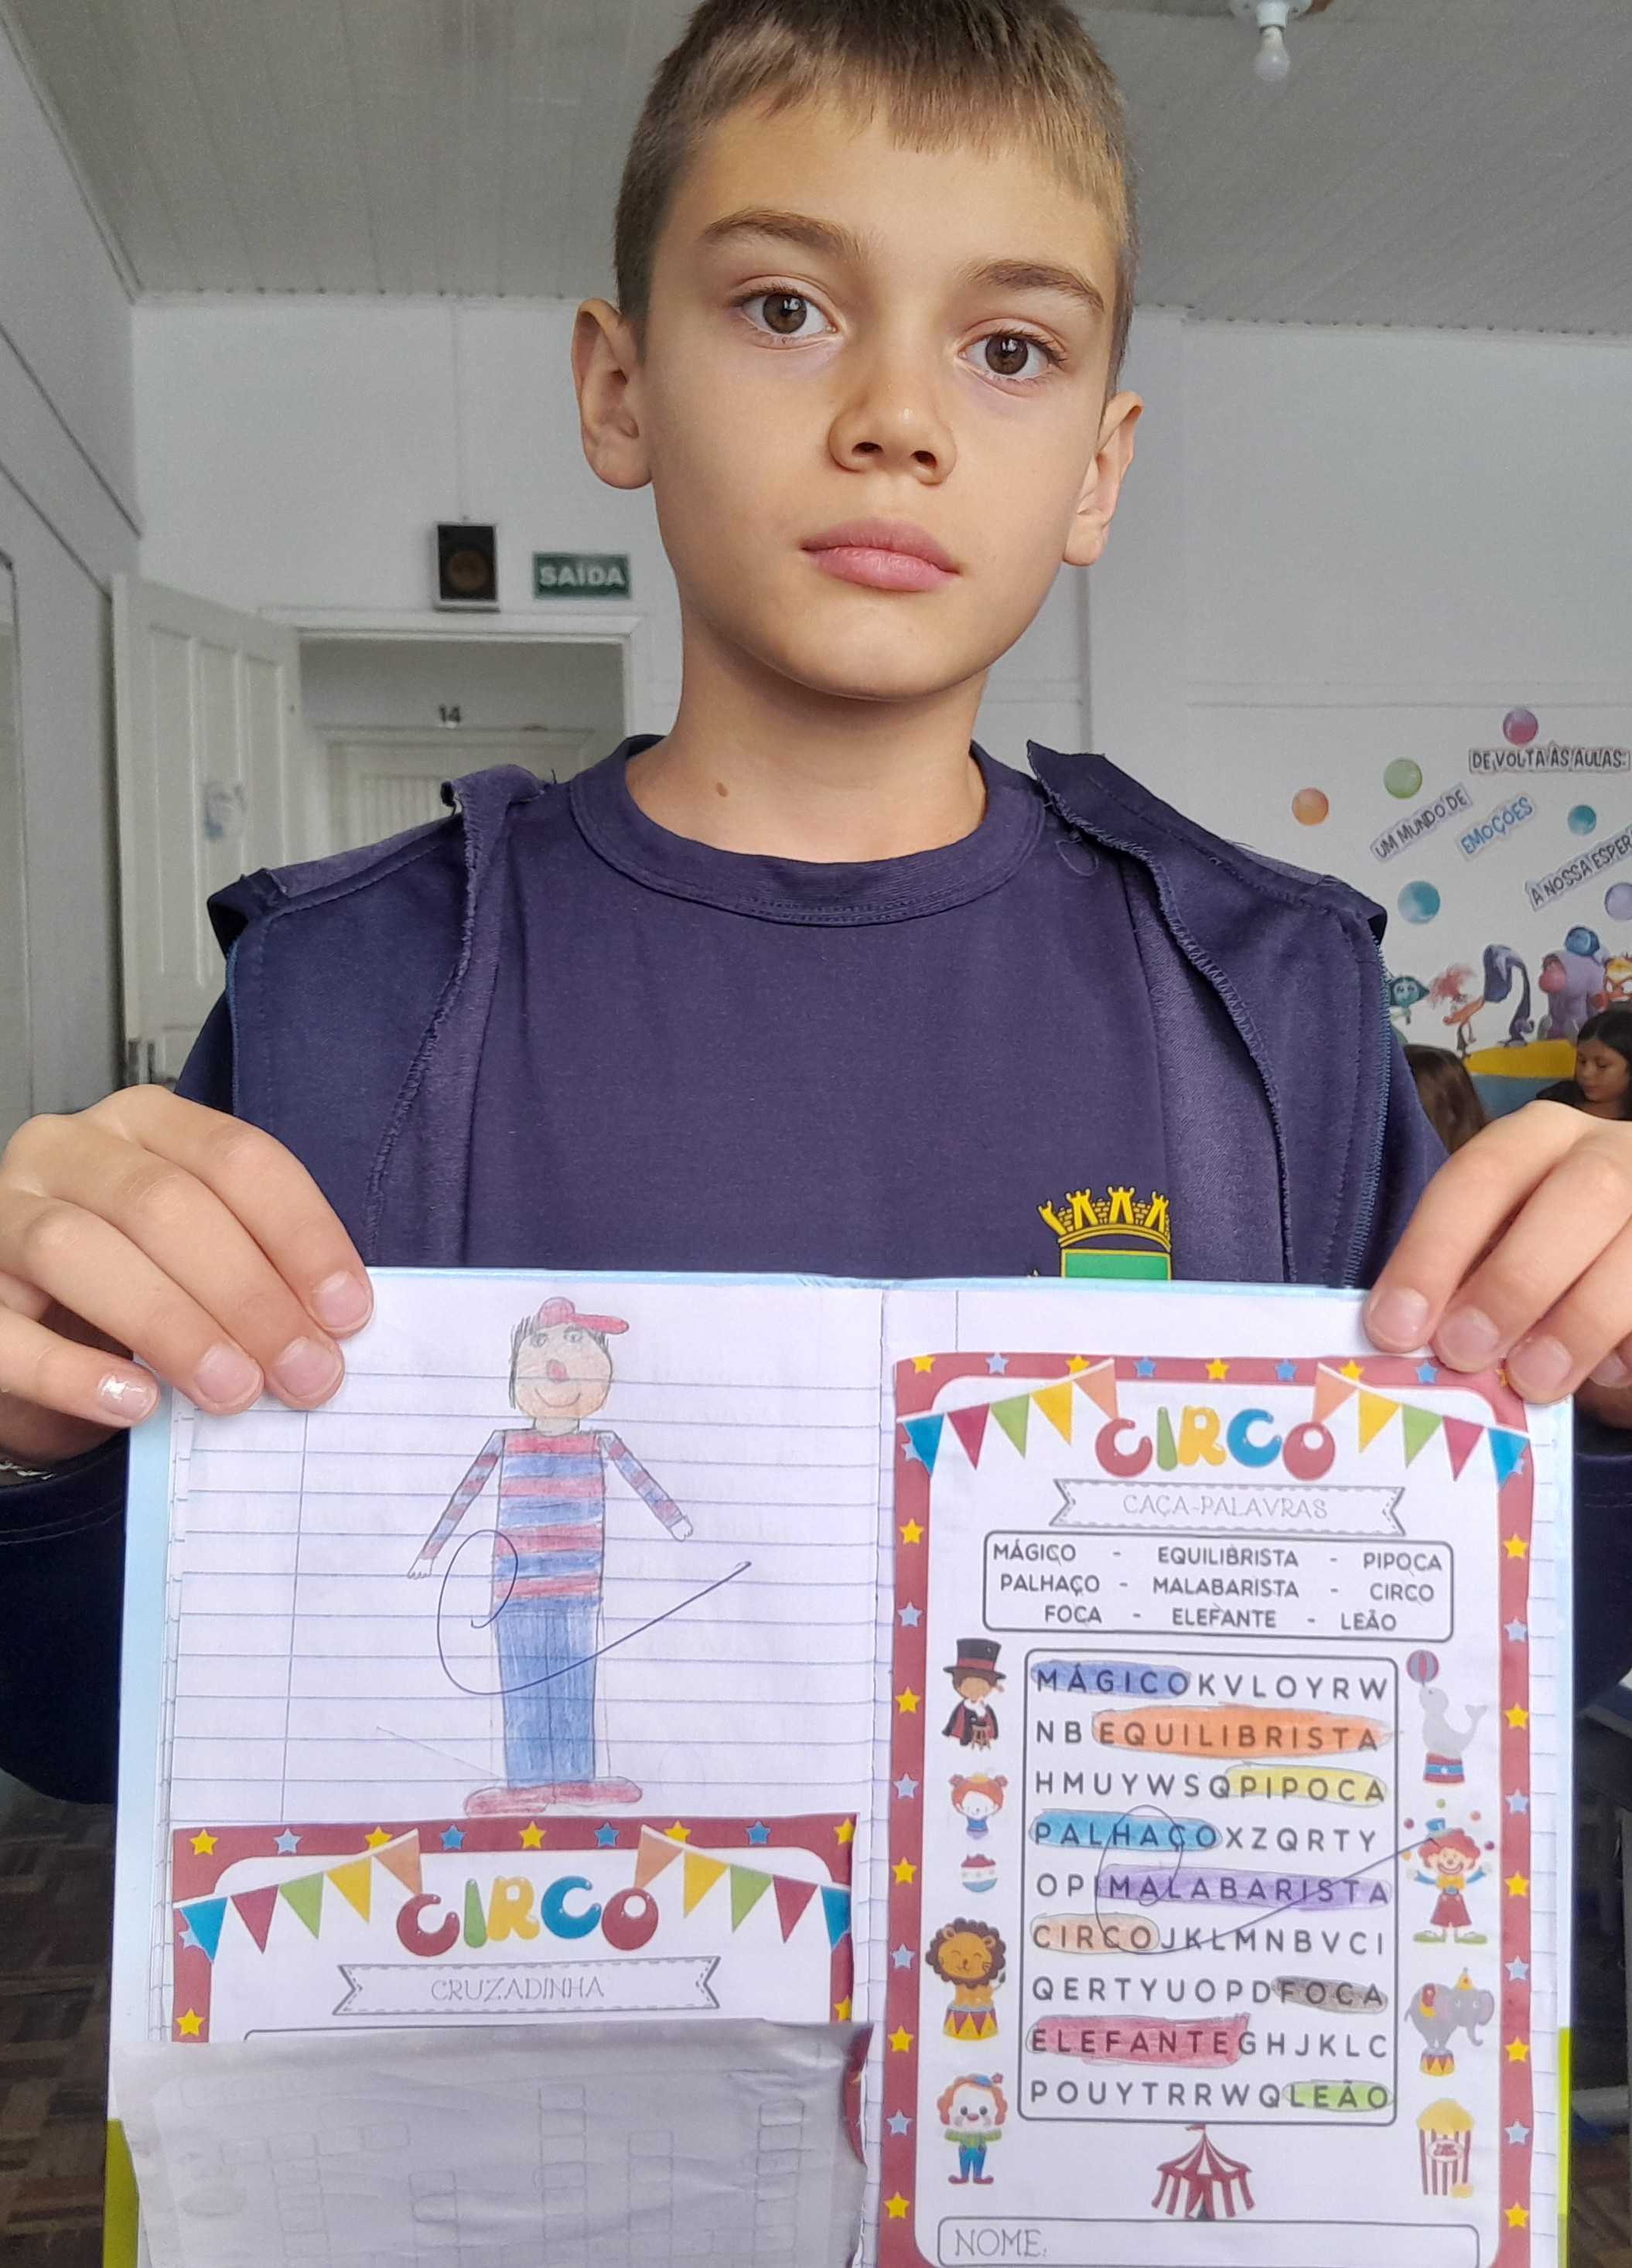 SAÍDA
14
DE VOLTA ÀS AULAS:
UM MUNDO DE
EMOÇÕES
A NOSSA ESPER
CIRCO
CAÇA-PALAVRAS
MÁGICO - EQUILIBRISTA - PIPOCA
PALHAÇO - MALABARISTA - CIRCO
FOCA - ELEFANTE - LEÃO
MÁGICOKVLOYRW
NBEQUILIBRISTA
HMUYWSQPIPOCA
PALHAÇOXZQRTY
OPIMALABARISTA
CIRCOJKLMNBVCI
QERTYUOPDFOCA
ELEFANTEGHJKLC
POUYTRRWQLEÃO
NOME:
CIRCO
CRUZADINHA